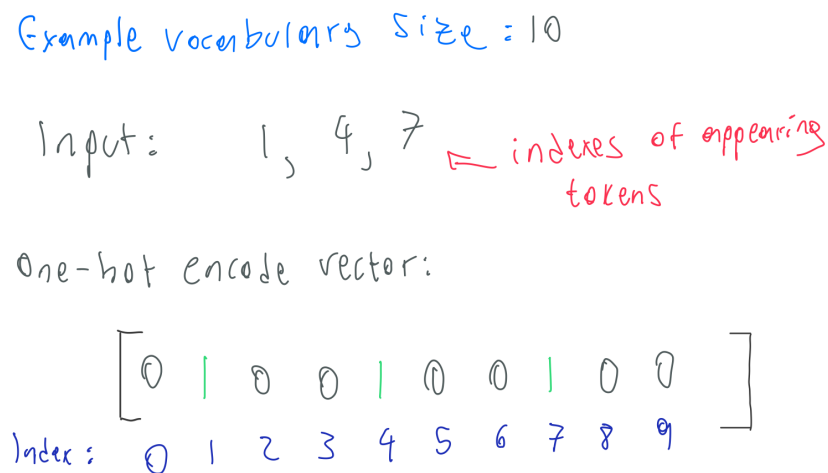 Example vocabulary size: 10
Input: 1, 4, 7
indexes of appearing
tokens
One-hot encode vector:
[0 1 0 0 1 0 0 1 0 0]
Index: 0 1 2 3 4 5 6 7 8 9